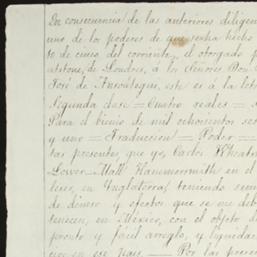 En consecuencia de las anteriores diligen
uno de los poderes de que se ha hecho
to de cinco del corriente, el otorgado p
de Londres, á los Señores Don
José de Ansoategui, este es á la letra
Segunda clase = Cuatro reales =
Para el bienio de mil ochocientos
y uno = Traduccion = Poder =
tas presentes, que yo, Carlos Wheat
Lower Mall Hammersmith en el
sex, en Inglaterra, teniendo
de dinero y efectos que se me deb
tenecen, en México, con el objeto d
pronto y fácil arreglo, y liquida
en ese Pais = Por las presen